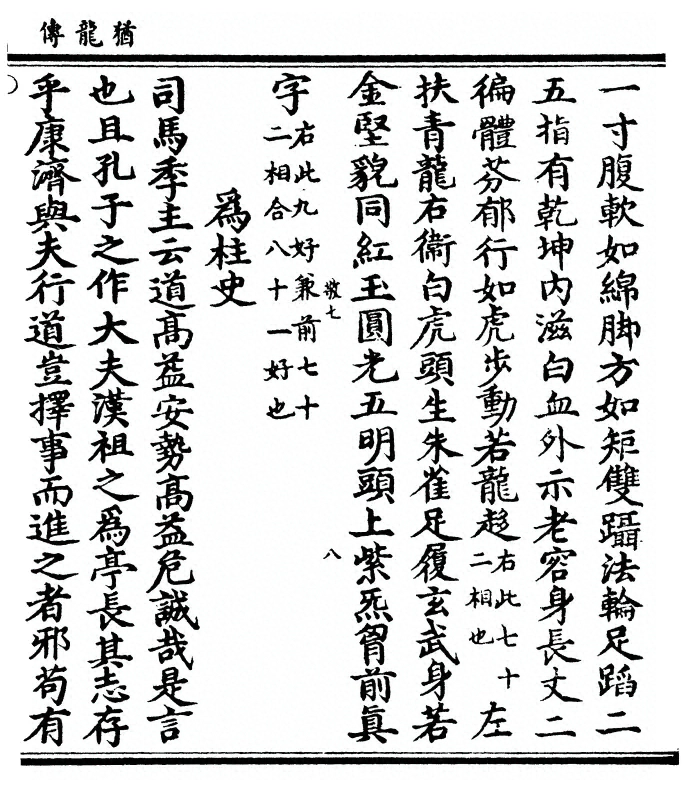 猶龍傳
一寸腹軟如綿脚方如矩雙躡法輪足蹈二
五指有乾坤内滋白血外示老容身長丈二
徧體芬郁行如虎步動若龍趍右此七十二相也左
扶青龍右衛白虎頭生朱雀足履玄武身若
金堅貌同紅玉圓光五明頭上紫炁胷前真
敬七
八
字右此九好兼前七十二相合八十一好也
爲柱史
司馬季主云道髙益安勢髙益危誠哉是言
也且孔子之作大夫漢祖之爲亭長其志存
乎康濟與夫行道豈擇事而進之者邪苟有